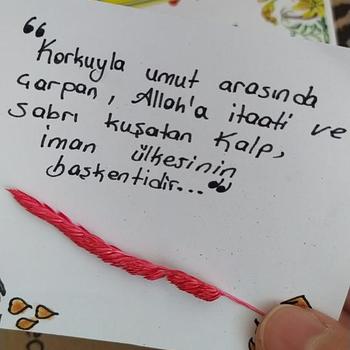 “Korkuyla umut arasında
çarpan, Allah'a itaati ve
sabrı kuşatan Kalp,
iman ülkesinin
başkentidir...”